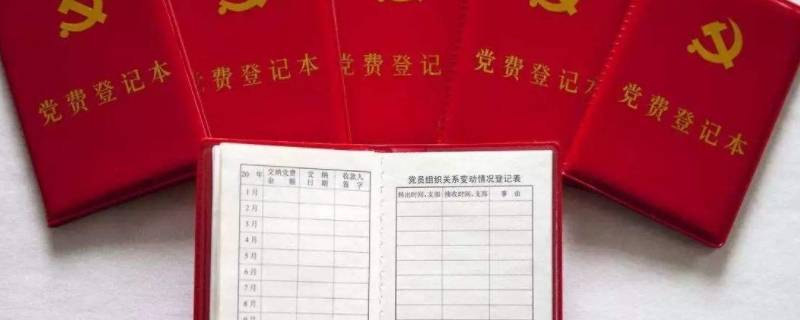 党费登记本
党费登记本
党费登记
党费登记本
党费登记本
20 年
交纳党费
金 额
交 纳
日 期
收款人
签 字
1月
2月
3月
4月
5月
6月
7月
8月
党员组织关系变动情况登记表
转出时间、支部
接收时间、支部
事 由